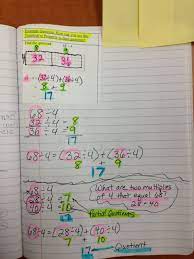 Find the quotient
32 36
= (32÷4)+(36÷4)
= 8 + 9
17
68÷4
32÷4 = 8
36÷4 = 9
17
68÷4 = (32÷4)+(36÷4)
8 + 9
17
68÷4
28÷4 = 7
40÷4 = 10
17
What are two multiples
of 4 that equal 68?
28 + 40
Partial Quotients
68÷4 = (28÷4)+(40÷4)
7 + 10
17 Quotient